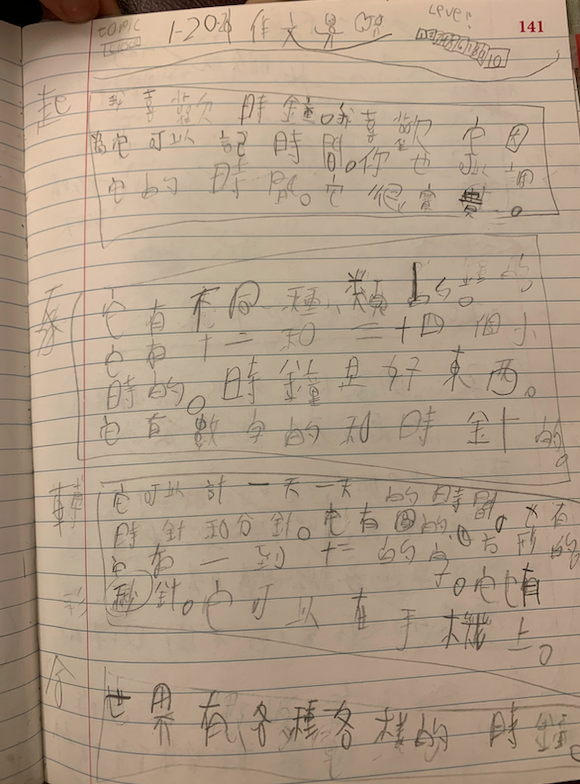 topic 1-20課 作文界 Level 141
起 我喜歡時鐘。我喜歡它因
為它可以記時間。你也可以調
它的時間。它很寶貴。
承 它有不同種類的。
它有十二和二十四個小
時的。時鐘是好東西。
它有數字的和時針的。
轉 它可以計一天一天的時間。
時針和分針。它有圓的。
它有一到十二的
秒針。它可以在手機上。它也有
合 世界有各種各樣的時鐘。